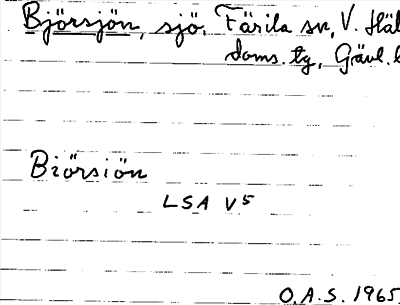 Björsjön, sjö. Färila sn, V. Häl
doms. tg, Gävl. l
Biörsiön
LSA V5
O.A.S. 1965